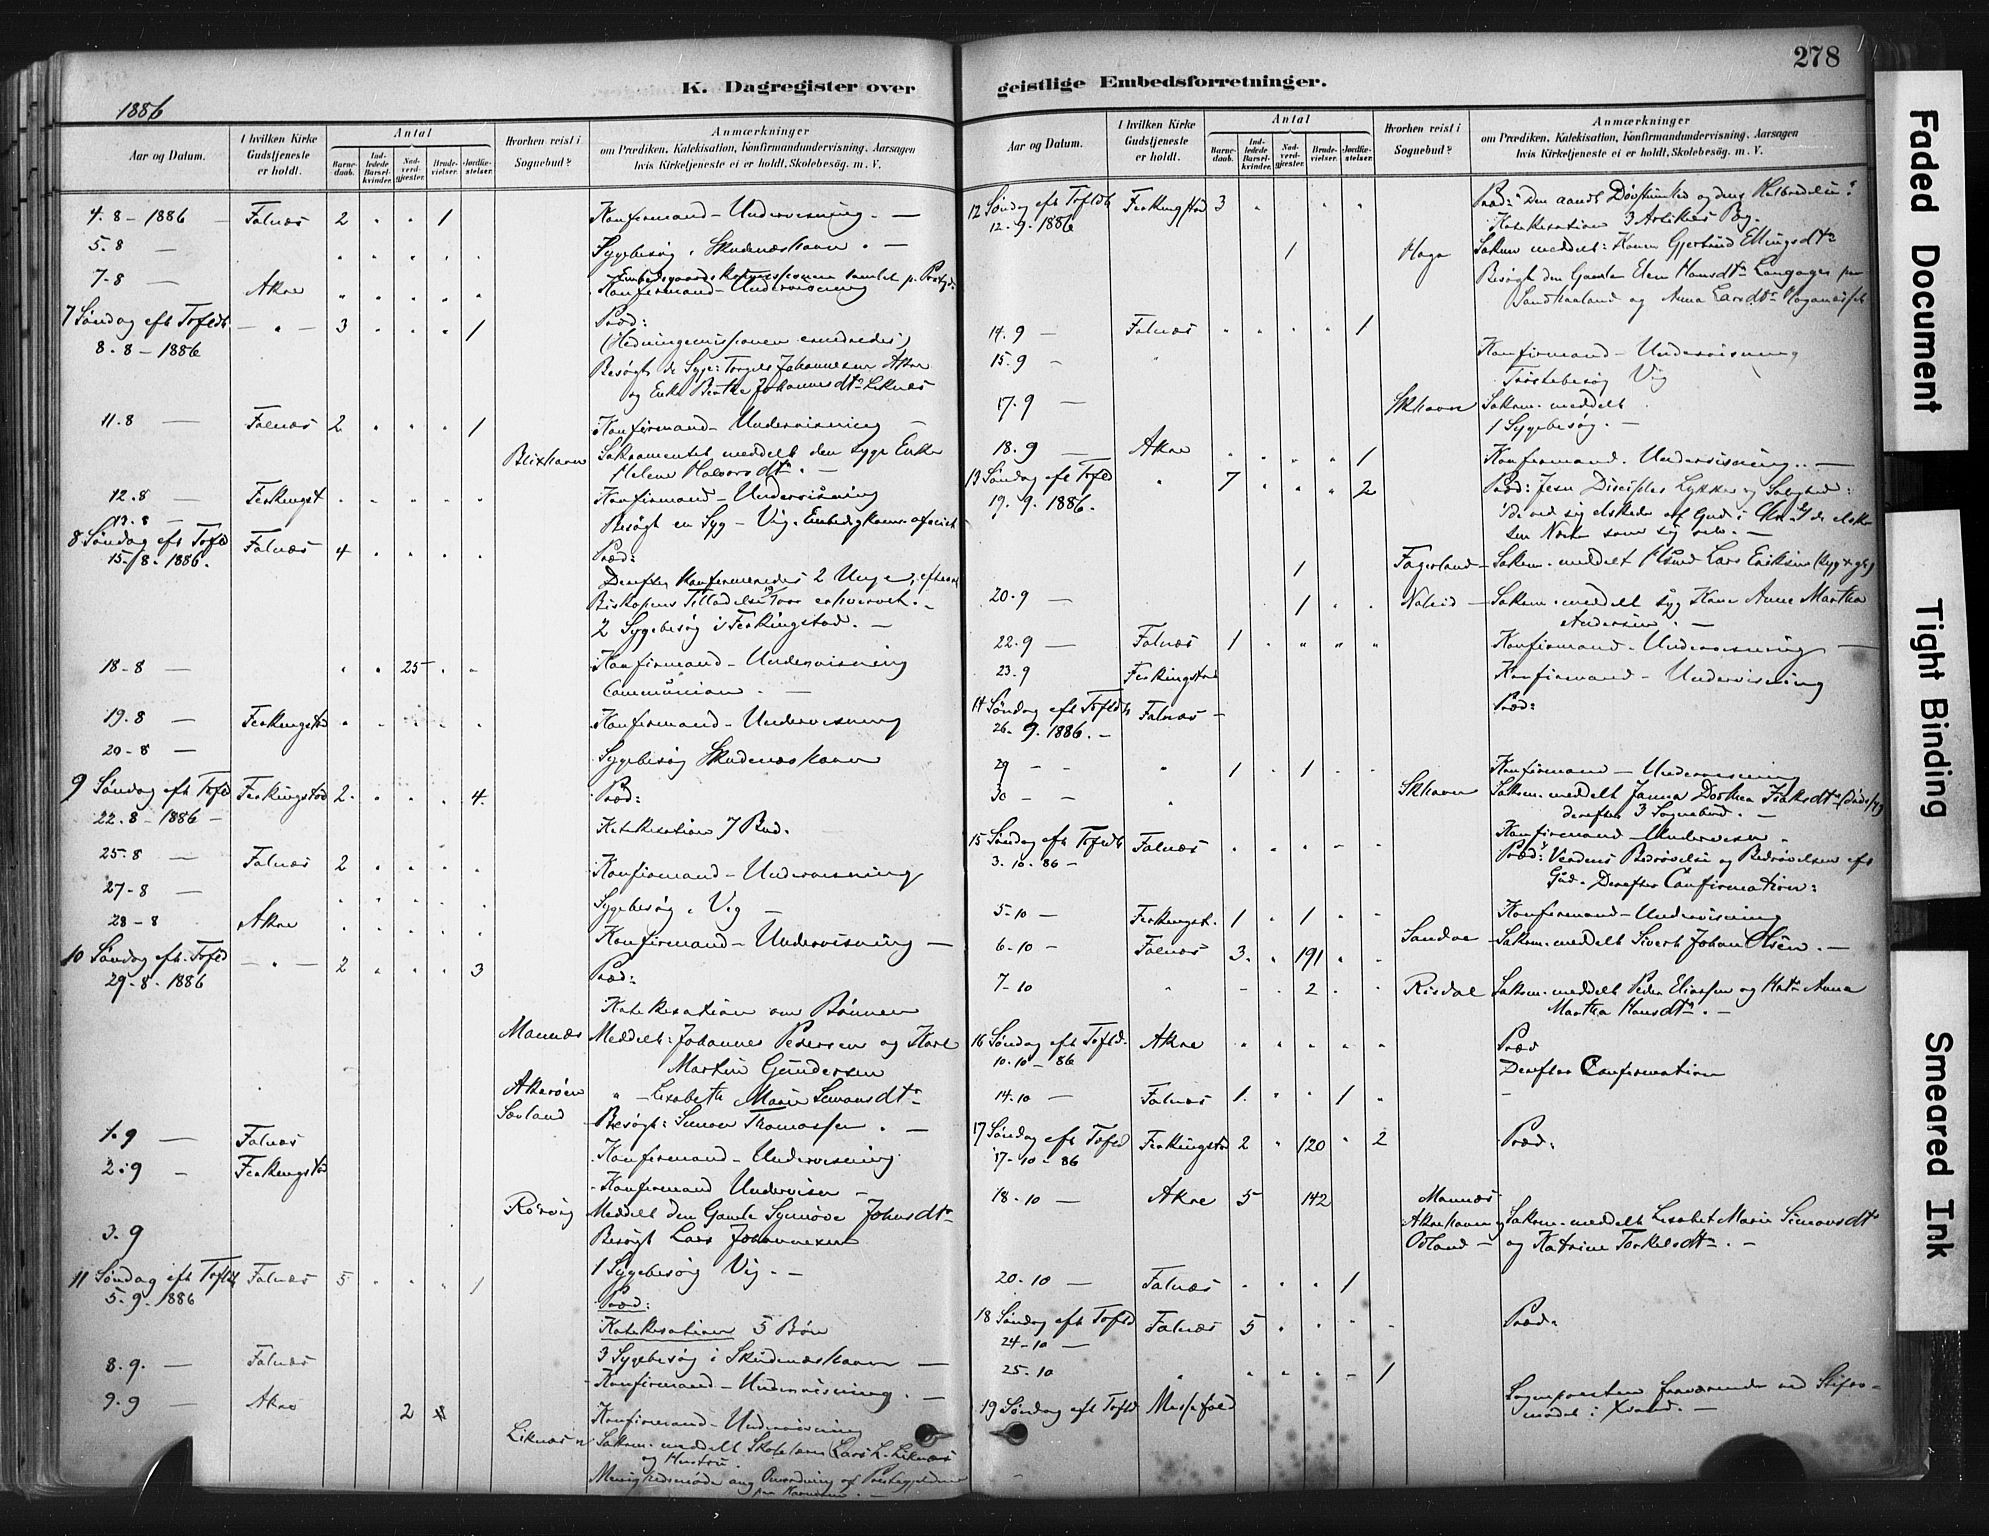 278
K. Dagregister over
geistlige Embedsforretninger.
1886
Aar og Datum.
I hvilken Kirke Gudstjeneste er holdt.
Antal
Barnedaab.
Indledede Barselkvinder.
Nadverdgjester.
Brudevielser.
Jordfæstelser.
Hvorhen reist i Sognebud?
Anmærkninger
om Prædiken, Katekisation, Konfirmandundervisning, Aarsagen
hvis Kirketjeneste ei er holdt, Skolebesøg, m. V.
4.8 - 1886 - Falnæs 2 " " 1 Konfirmand-Undervisning. —
5.8 — Sygebesøg. Skudeneshavn. —
7-8 — Akre Konfirmand-Undervisning
7 Søndag eft Trefldh — " — 3 " " " 1 Præd:
8.8 - 1886
Besøgt de Syge: Torgels Johannesen Akre
og Enke Berthe Johannesdtr Liknæs
11.8 — Falnæs 2 " " " 1 Konfirmand-Undervisning —
Blikshavn Sakramentet meddelt den syge Enke
Helene Halvorsdtr. —
12.8 — Ferkingst Konfirmand-Undervisning
13.8 — Besøgt en Syg - Vig.
8 Søndag eft Trefld Falnæs 4 Præd:
15/8. 1886.
Derefter Konfirmeredes 2 Unge,
Biskopens Tilladelse var erhvervet. —
2 Sygebesøg i Ferkingstad. —
18-8 — " " 25 " " Konfirmand-Undervisning
Communion. —
19.8 — Ferkingstad Konfirmand-Undervisning
20-8 — Sygebesøg Skudeneshavn
9 Søndag eft Trefld Ferkingstad 2 " " " 4. Præd:
22.8 - 1886 - Katekisation 7 Bud.
25.8 — Falnæs 2 Konfirmand-Undervisning
27-8 — Sygebesøg. Vig —
28-8 Akre Konfirmand-Undervisning —
10 Søndag eft. Trefld — " — 2 " " " 3 Præd:
29.8. 1886
Katekisation om Bønnen
Mannæs Meddelt: Johannes Pedersen og Karl
Martin Gundersen
Akreøen " - Lisabeth Marie Simonsdtr
Sævland Besøgt: Simon Thomassen. —
1.9 — Falnæs Konfirmand-Undervisning
2.9 — Ferkingstad Konfirmand Underviser —
Rörvig Meddelt den Gamle Synnøve Johnsdtr
3.9 Besøgt Lars Johannesen
1 Sygebesøg Vig. —
11 Søndag eft Trefldh Falnæs 5 " " " 1 Præd:
5.9. 1886
Katekisation 5 Bøn
3 Sygebesøg i Skudeneshavn —
8.9. — Falnæs Konfirmand-Undervisning. —
9.9 — Akre 2 Konfirmand-Undervisning
Liknæs Sakram. meddelt Lars L. Liknæs
og Hustru.
Menighedsmøde ang Omordning af
Aar og Datum.
I hvilken Kirke Gudstjeneste er holdt.
Antal
Barnedaab.
Indledede Barselkvinder.
Nadverdgjester.
Brudevielser.
Jordfæstelser.
Hvorhen reist i Sognebud?
Anmærkninger
om Prædiken, Katekisation, Konfirmandundervisning, Aarsagen
hvis Kirketjeneste ei er holdt, Skolebesøg, m. V.
12 Søndag eft Trefldh Ferkingstad 3 Præd: Den aandl. Døvstumhed og dens Helbredelse?
12.9. 1886 Katekisation 3 Artikel
1 Haga Sakram meddelt: Konen Gjertrud Ellingsdtr
Besøgt den Gamle Elen Hansdtr Langager
Sandhaaland og Anna Larsdtr
14.9 — Falnæs " " " " 1
15.9 — " Konfirmand-Undervisning
Trøstebesøg Vig
17.9 — Skhavn Sakram. meddelt
1 Sygebesøg. —
18.9 — Akre " " " " 1 Konfirmand. Undervisning. —
13 Søndag eft Trefld " 7 " " " 2 Præd: Jesu Disciples Lykke og Salighed:
19.9. 1886.
1 Fagerland - Sakram. meddelt Lars Eriksen
20.9 — 1 " " Sakram. meddelt syg Kone Anne Martha
Andersen. —
22.9 — Falnæs 1 Konfirmand-Undervisning —
23.9 Ferkingstad Konfirmand-Undervisning
14 Søndag eft Trefldh Falnæs - Præd:
26.9. 1886. —
29 — " 1 " 1 " " Konfirmand-Undervisning
30 — " Skhavn Sakram. meddelt Janna Dorthea
derefter 3 Sognebud. —
Konfirmand-Underviser.
15 Søndag eft Trefldh Falnæs Præd: Verdens Bedrøvelse og Bedrøvelsen eft
3.10.86 — Gud. Derefter Confirmation:
5-10 — Ferkingst. 1 " 1 " " Konfirmand-Undervisning
6-10 — Falnæs 3. " 191 " " Sandve Sakram. meddelt Sivert Johan Olsen. —
7-10 " - - 2 " " Risdal Sakram. meddelt Peder Eliassen og Anna
Martha Hansdtr. —
16 Søndag eft Trefld. Akre Præd
10.10 - 86 Derefter Confirmation
14.10 — Falnæs 1. " " 1 "
17 Søndag eft Trefld Ferkingstad 2 " 120 " 2 Præd:
17-10-86
18-10 — Akre 5 142 Mannæs
Akrehavn og Sakram. meddelt Lisabet Marie Simonsdtr
Odland — og Katrine Torkelsdtr. —
20-10 — Falnæs " " " 1
18 Søndag eft Trefld Falnæs 5 Præd:
24-10 —
25-10 " 1
19 Søndag eft Trefld Messefald Sognepresten fraværende ved Stifts-
mødet i Xsand. —
Faded Document
Tight Binding
Smeared Ink